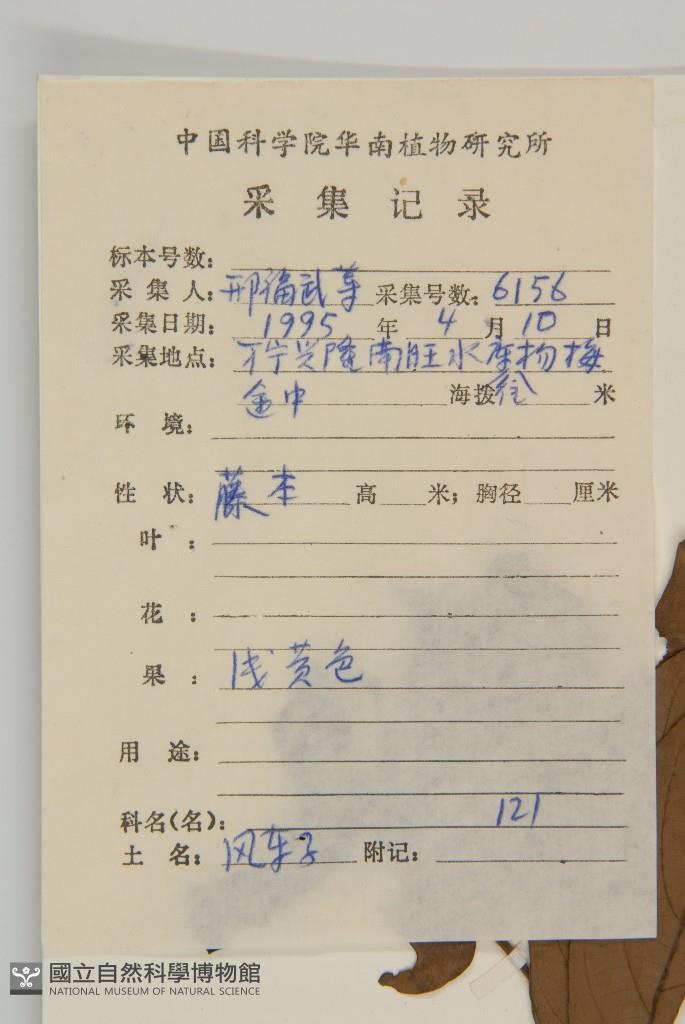 中国科学院华南植物研究所
采集记录
标本号数:
采集人: 邢福武等 采集号数: 6156
采集日期: 1995 年 4 月 10 日
采集地点: 万宁兴隆南旺水库
海拔 米
环境:
性状: 藤本 高 米; 胸径 厘米
叶:
花:
果: 浅黄色
用途:
科名(名): 121
土名: 风车子 附记:
國立自然科學博物館
NATIONAL MUSEUM OF NATURAL SCIENCE